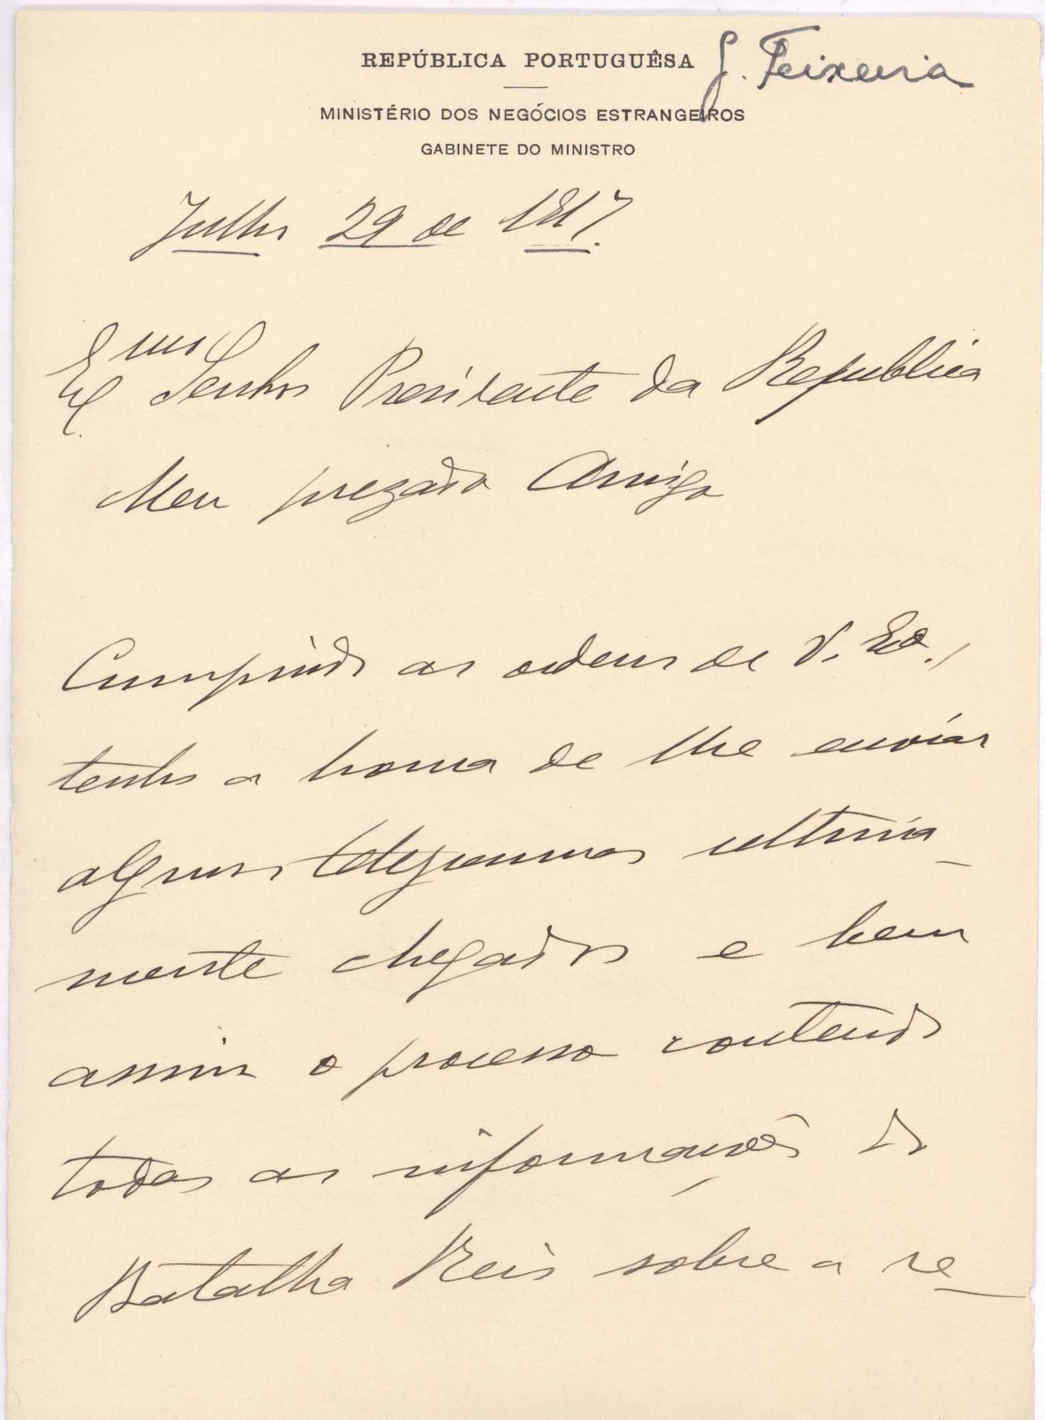 REPÚBLICA PORTUGUÊSA
G. Teixeira
MINISTÉRIO DOS NEGÓCIOS ESTRANGEIROS
GABINETE DO MINISTRO
Julho 29 de 1917.
Exmo Senhor Presidente da Republica
Meu prezado Amigo
Cumprindo as ordens de V. Exa.,
tenho a honra de lhe enviar
alguns telegramas ultima-
mente chegados e bem
assim o processo contendo
todas as informações do
Batalha Reis sobre a re-